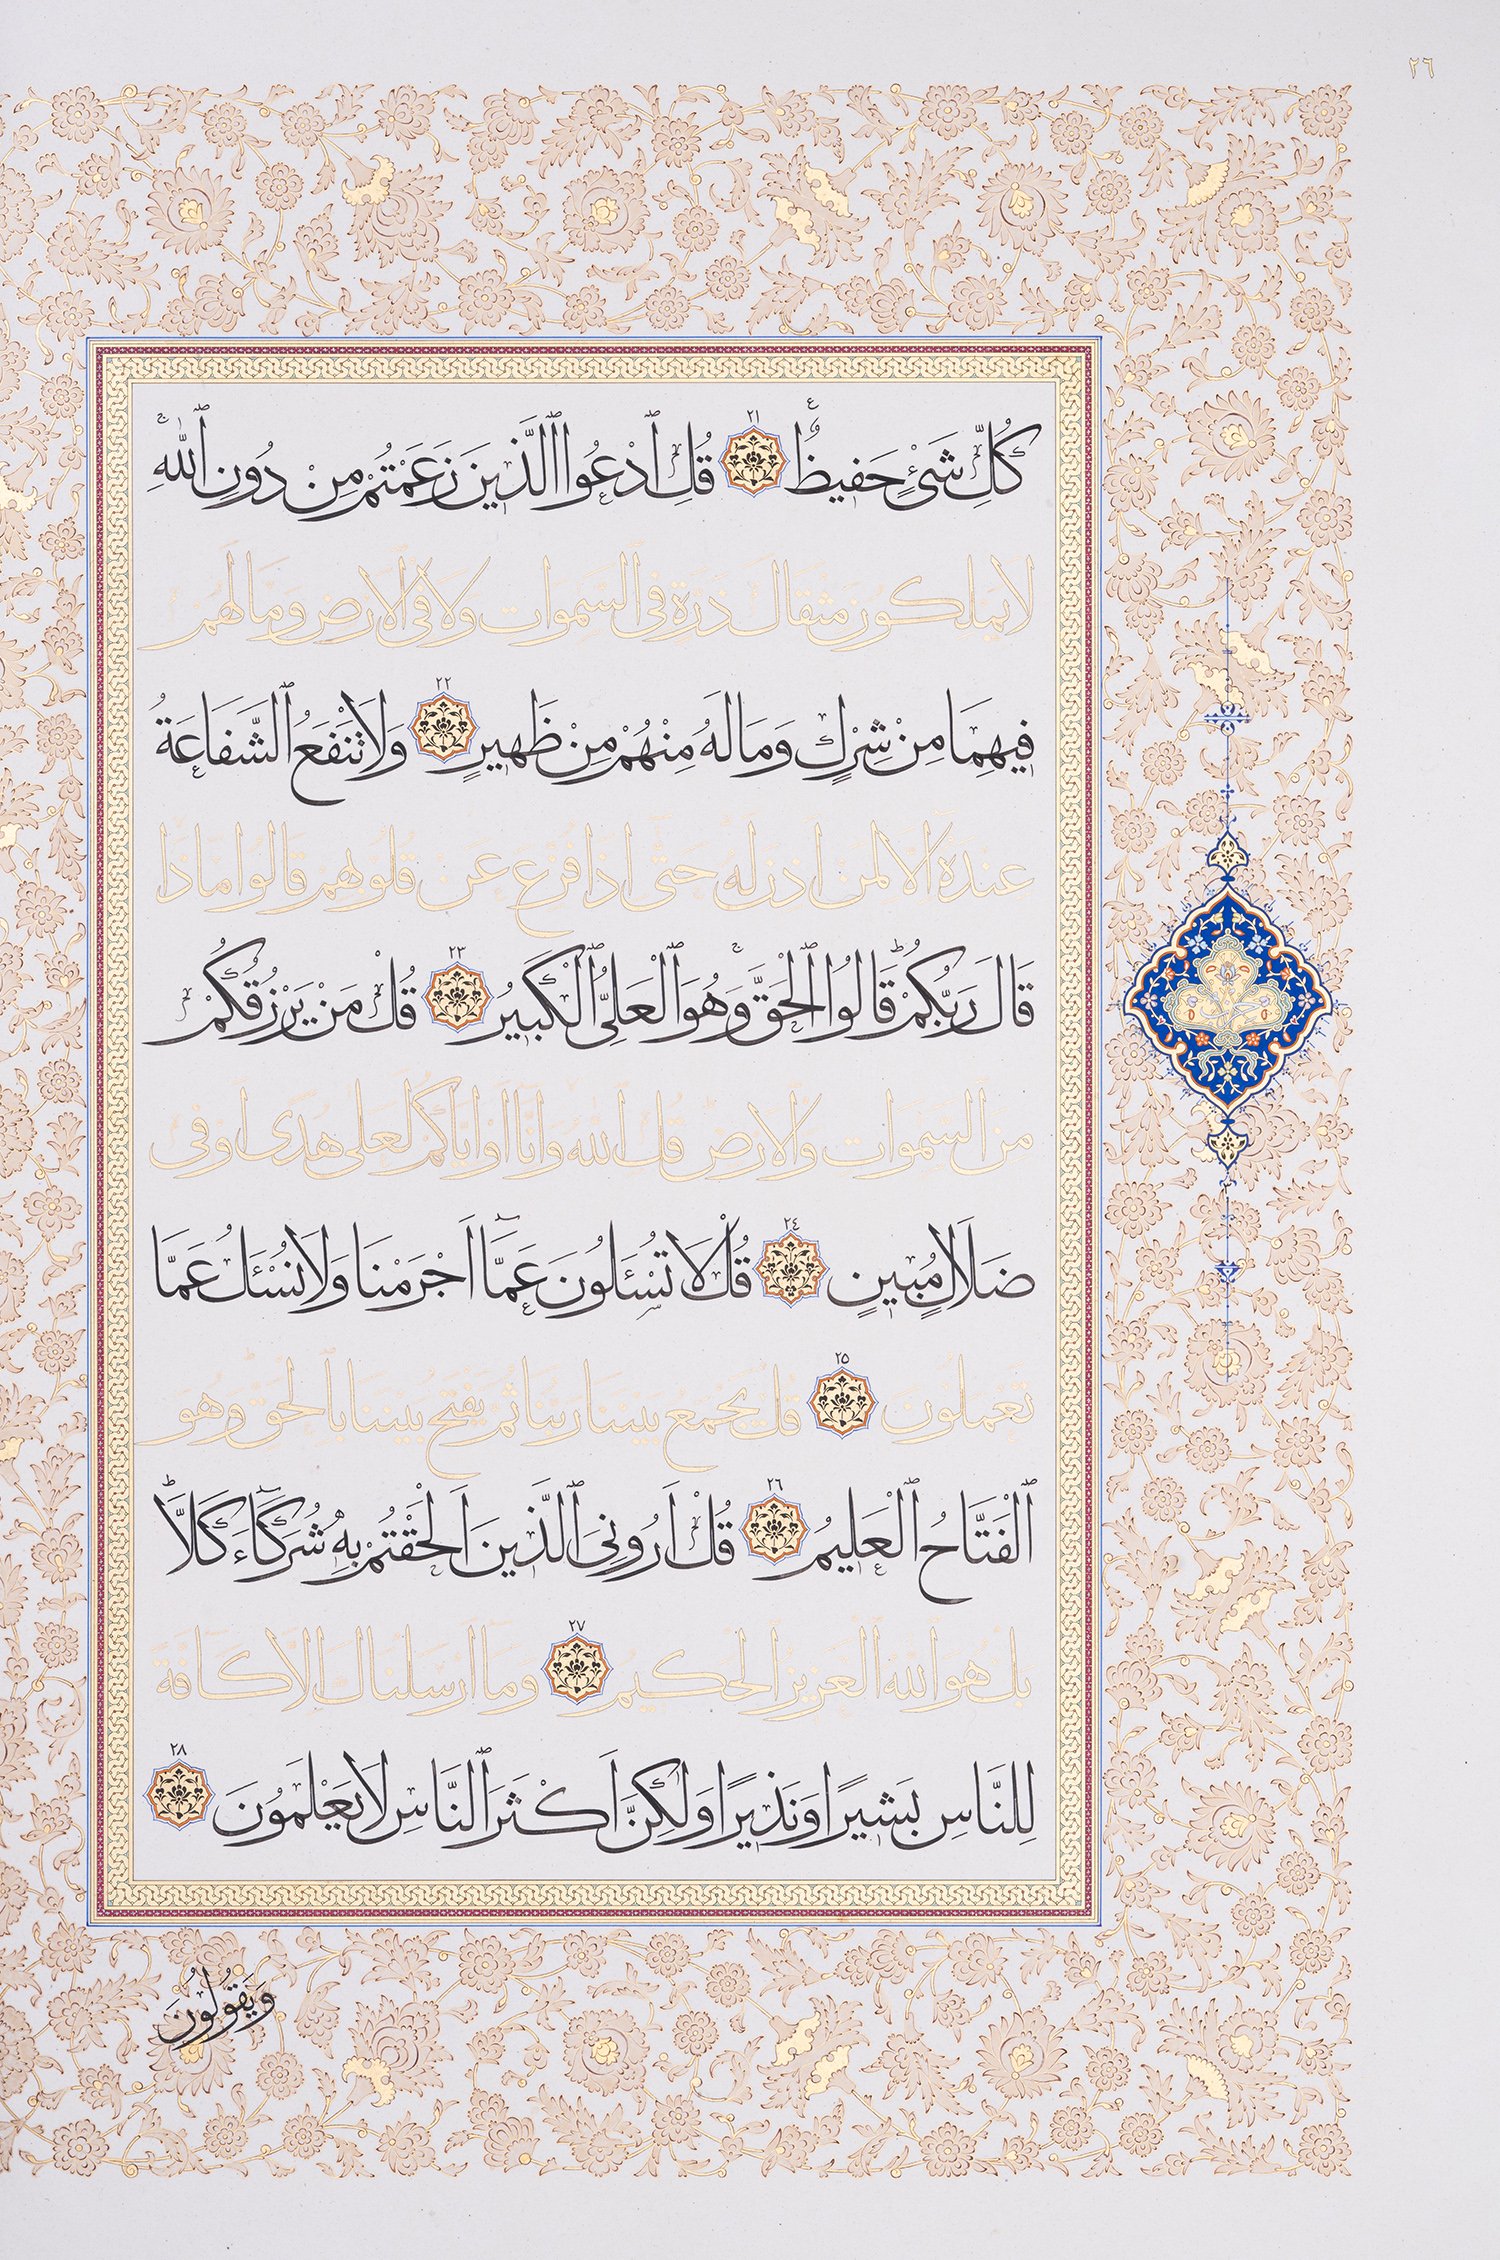 ٢٦
كُلِّ شَیْءٍ حَفٖیظٌ ٢١ قُلِ ٱدْعُوا ٱلَّذٖینَ زَعَمْتُمْ مِنْ دُونِ ٱللّٰهِ
لا یملكون مثقال ذرة فی ٱلسموات ولا فی ٱلارض وما لهم
فٖیهِمَا مِنْ شِرْكٍ وَمَا لَهُ مِنْهُمْ مِنْ ظَهٖیرٍ ٢٢ وَلَا تَنْفَعُ ٱلشَّفَاعَةُ
عنده الا لمن اذن له حتى اذا فزع عن قلوبهم قالوا ماذا
قَالَ رَبُّكُمْ قَالُوا ٱلْحَقَّ وَهُوَ ٱلْعَلِیُّ ٱلْكَبٖیرُ ٢٣ قُلْ مَنْ یَرْزُقُكُمْ
من ٱلسموات وٱلارض قل ٱلله وانا او ایاكم لعلى هدى او فی
ضَلَالٍ مُبٖینٍ ٢٤ قُلْ لَا تُسْـَٔلُونَ عَمَّٓا اَجْرَمْنَا وَلَا نُسْـَٔلُ عَمَّا
تعملون ٢٥ قل یجمع بیننا ربنا ثم یفتح بیننا بٱلحق وهو
ٱلْفَتَّاحُ ٱلْعَلٖیمُ ٢٦ قُلْ اَرُونِیَ ٱلَّذٖینَ اَلْحَقْتُمْ بِهٖ شُرَكَٓاءَ كَلَّا
بل هو ٱلله ٱلعزیز ٱلحكیم ٢٧ وما ارسلناك الا كافة
لِلنَّاسِ بَشٖیرًا وَنَذٖیرًا وَلٰكِنَّ اَكْثَرَ ٱلنَّاسِ لَا یَعْلَمُونَ ٢٨
وَیَقُولُونَ